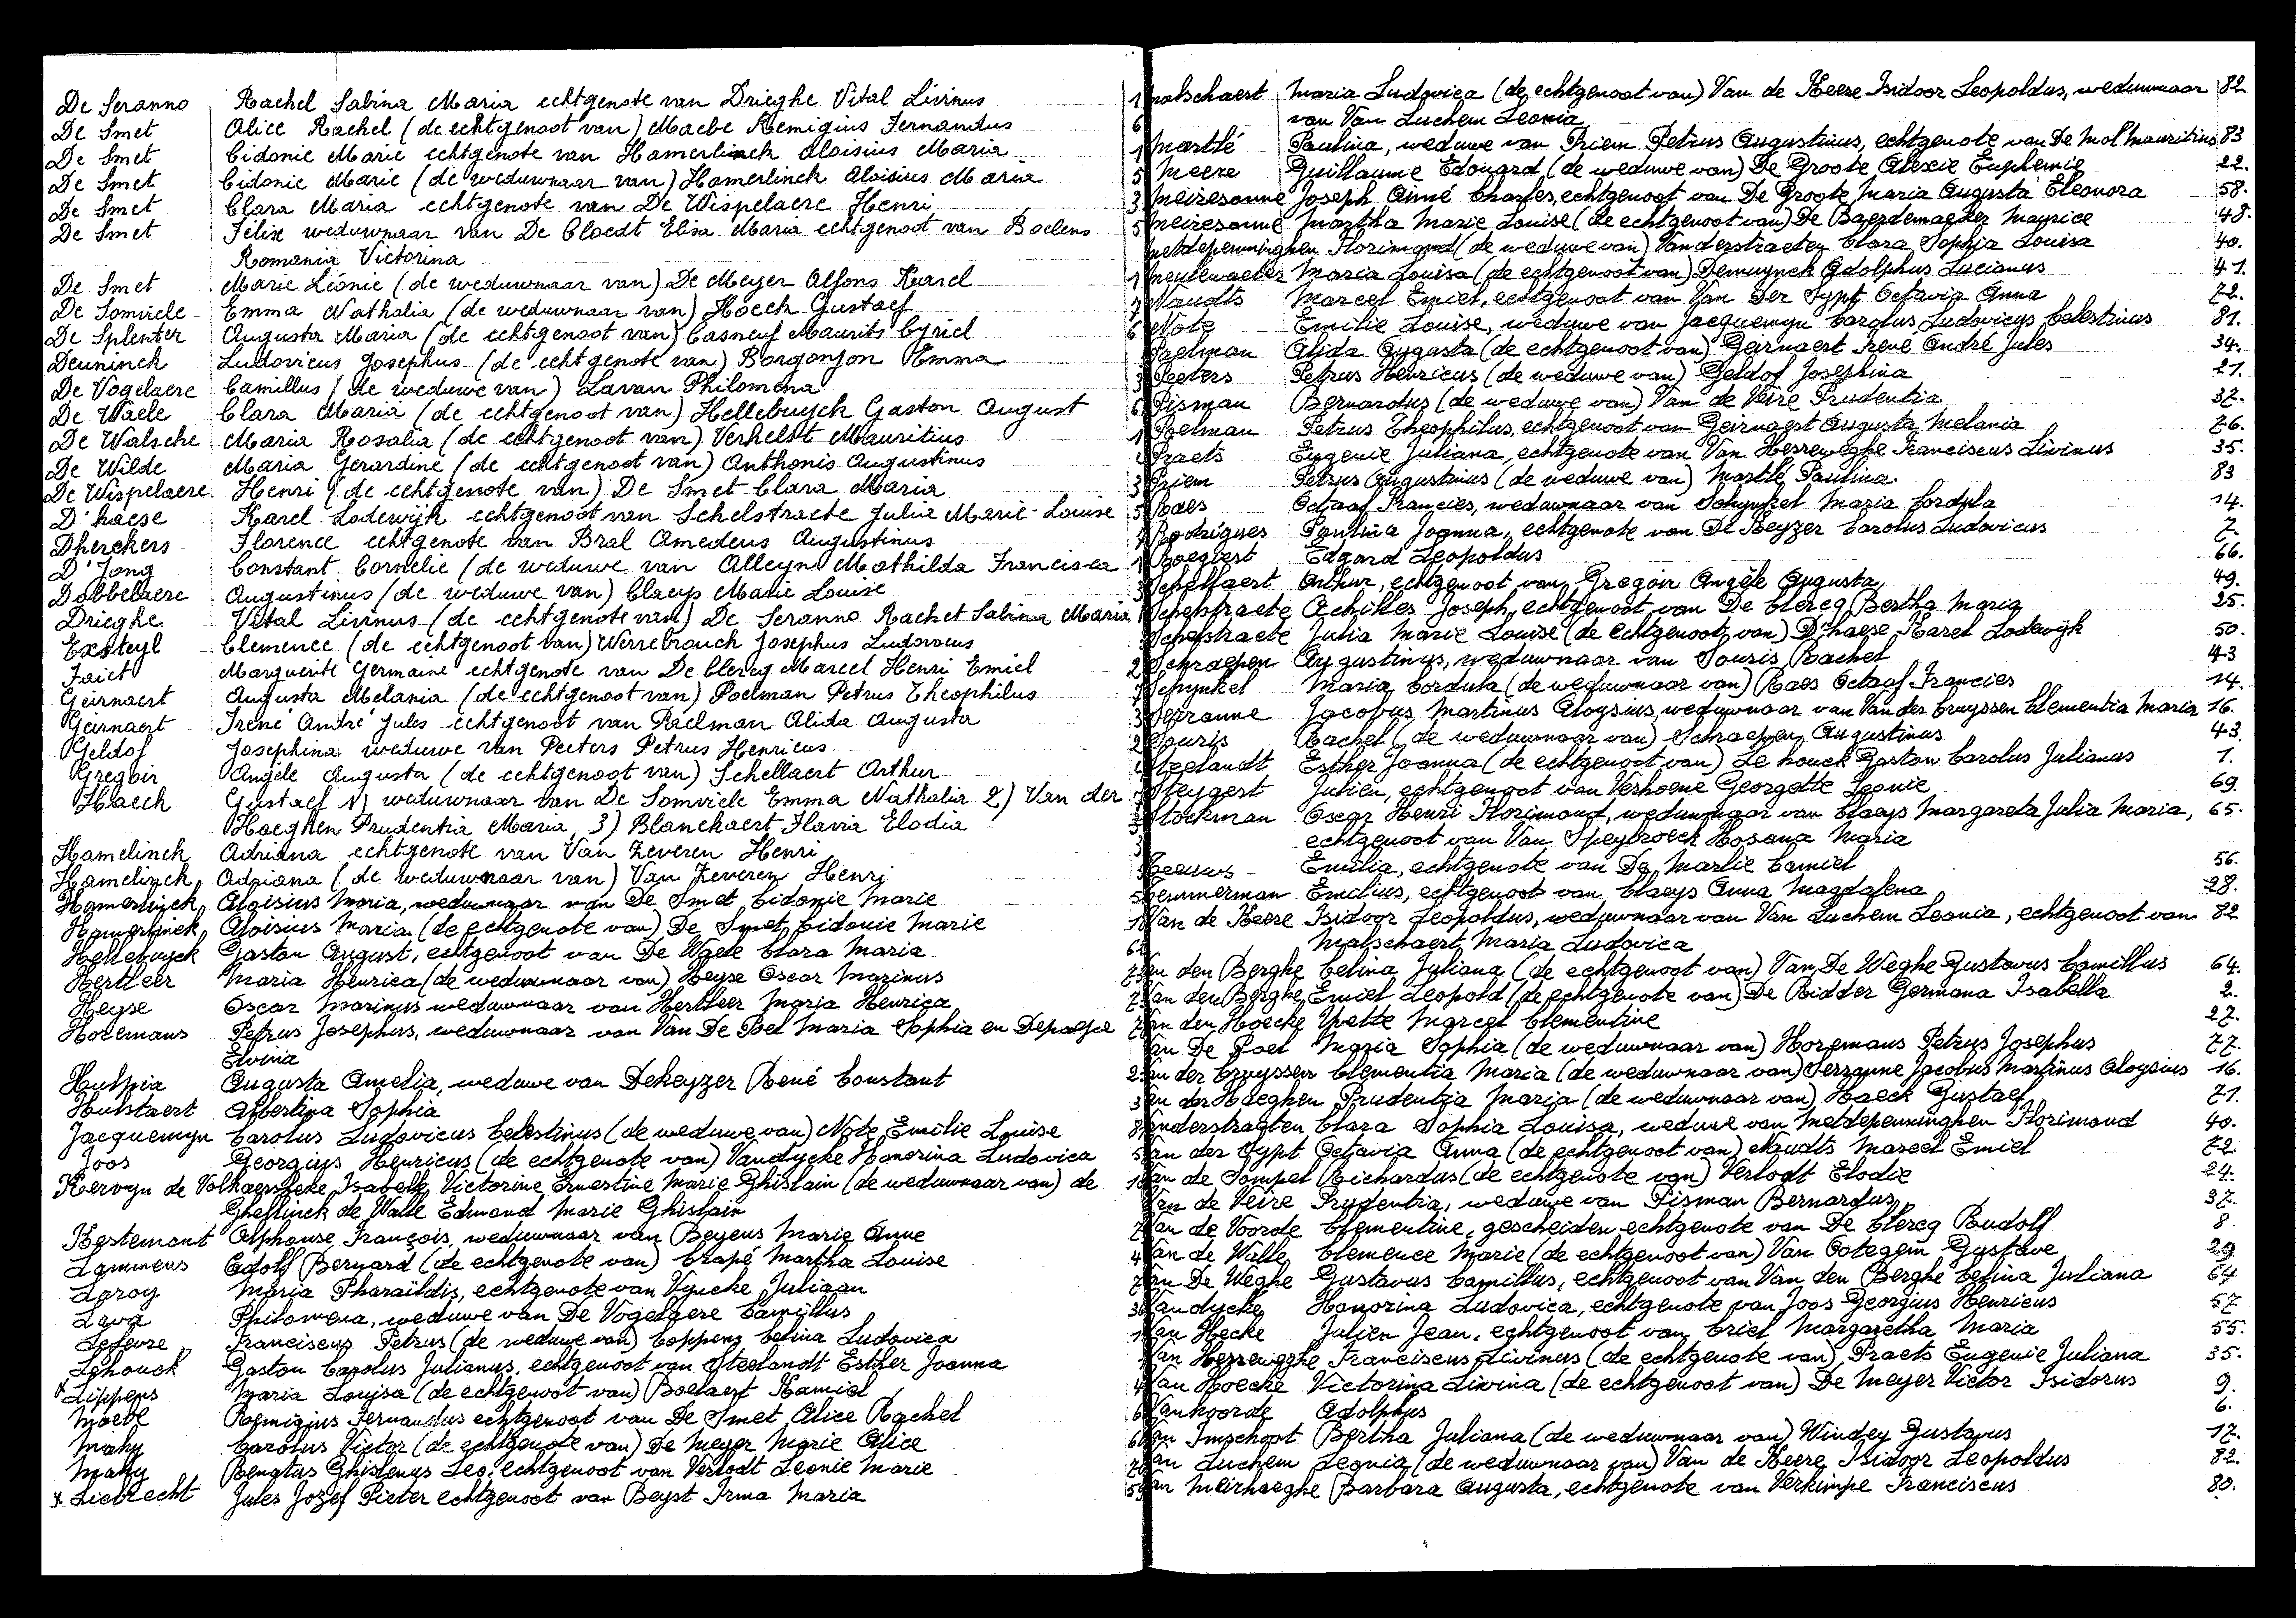 De Seranno Rachel Sabina Maria echtgenote van Drieghe Vital Livinus 1
De Smet Alice Rachel (de echtgenoot van) Maebe Remigius Fernandus 6
De Smet Cidonie Marie echtgenote van Hamerlinck Aloisius Maria 1
De Smet Cidonie Marie (de weduwnaar van) Hamerlinck Aloisius Maria 5
De Smet Clara Maria echtgenote van De Wispelaere Henri 3
De Smet Felix weduwnaar van De Cloedt Elisa Maria echtgenoot van Boelens 5
Romania Victorina
De Smet Marie Léonie (de weduwnaar van) De Meyer Alfons Karel 1
De Somviele Emma Nathalia (de weduwnaar van) Hoeck Gustaef 7
De Splenter Augusta Maria (de echtgenoot van) Casneuf Maurits Cyriel 6
Deuninck Ludovicus Josephus (de echtgenote van) Borgonjon Emma
De Vogelaere Camillus (de weduwe van) Lavan Philomena 3
De Waele Clara Maria (de echtgenoot van) Hellebuyck Gaston August 6
De Walsche Maria Rosalia (de echtgenoot van) Verhelst Mauritius 1
De Wilde Maria Gerardine (de echtgenoot van) Anthonis Augustinus
De Wispelaere Henri (de echtgenote van) De Smet Clara Maria 3
D'haese Karel Lodewijk echtgenoot van Schelstraete Julia Marie-Louise 5
Dherckers Florence echtgenote van Bral Amedeus Augustinus
D'Jong Constant Cornelie (de weduwe van Alleyn Mathilda Francisca 1
Dobbelaere Augustinus (de weduwe van) Claeys Marie Louise
Drieghe Vital Livinus (de echtgenote van) De Seranno Rachel Sabina Maria
Exsteyl Clemence (de echtgenoot van) Werrebrouck Josephus Ludovicus
Faict Marguerite Germaine echtgenote van De Clercq Marcel Henri Emiel 2
Geirnaert Augusta Melania (de echtgenoot van) Poelman Petrus Theophilus
Geirnaert Irené André Jules echtgenoot van Paelman Alida Augusta 3
Geldof Josephina weduwe van Peeters Petrus Henricus 2
Gregoir Angèle Augusta (de echtgenoot van) Schellaert Arthur
Haeck Gustaef 1) weduwnaar van De Somviele Emma Nathalia 2) Van der
Haeghen Prudentia Maria, 3) Blanckaert Flavia Elodia
Hamelinck Adriana echtgenote van Van Zeveren Henri
Hamelinck Adriana (de weduwnaar van) Van Zeveren Henri
Hamerlinck Aloisius Maria, weduwnaar van De Smet Cidonie Marie 5
Hamerlinck Aloisius Maria (de echtgenote van) De Smet Cidonie Marie 1
Hellebuyck Gaston August, echtgenoot van De Waele Clara Maria 6
Hertleer Maria Henrica (de weduwnaar van) Heyse Oscar Marinus 7
Heyse Oscar Marinus weduwnaar van Hertleer Maria Henrica 7
Horemans Petrus Josephus, weduwnaar van Van De Poel Maria Sophia en Depaepe 7
Elvina
Hulpia Augusta Amelia, weduwe van Dekeyzer René Constant 2
Hulstaert Albertina Sophia 3
Jacquemyn Carolus Ludovicus Celestinus (de weduwe van) Note Emilie Louise 8
Joos Georgius Henricus (de echtgenote van) Vandycke Honorina Ludovica 5
Kervyn de Volkaersbeke Isabelle Victorine Ernestine Marie Ghislain (de weduwnaar van) de 1
Ghellinck de Walle Edmond Marie Ghislain
Kestemont Alphonse François, weduwnaar van Beyens Marie Anne 7
Lammens Adolf Bernard (de echtgenote van) Crapé Martha Louise 4
Laroy Maria Pharaïldis, echtgenote van Vyncke Juliaan 7
Lava Philomena, weduwe van De Vogelaere Camillus 3
Lefevre Franciscus Petrus (de weduwe van) Coppens Celina Ludovica 1
Lehouck Gaston Carolus Julianus, echtgenoot van Steelandt Esther Joanna
Lippens Maria Louisa (de echtgenoot van) Boelaert Kamiel 4
Maebe Remigius Fernandus echtgenoot van De Smet Alice Rachel 6
Mahy Carolus Victor (de echtgenote van) De Meyer Marie Alice 6
Mahy Renatus Ghislenus Leo, echtgenoot van Verlodt Leonie Marie
x Liebrecht Jules Jozef Pieter echtgenoot van Beyst Irma Maria 5
Malschaert Maria Ludovica (de echtgenoot van) Van de Keere Isidoor Leopoldus, weduwnaar 82
van Van Luchem Leonia
Martlé Paulina, weduwe van Priem Petrus Augustinus, echtgenote van De Mol Mauritius 83
Meere Guillaume Edouard (de weduwe van) De Groote Alexie Euphemie 22.
Meiresonne Joseph Aimé Charles, echtgenoot van De Groote Maria Augusta Eleonora 58.
Meiresonne Martha Marie Louise (de echtgenoot van) De Baerdemaeker Maurice 48.
Metdepenninghen Florimond (de weduwe van) Vanderstraeten Clara Sophia Louisa 40.
Meulewaeter Maria Louisa (de echtgenoot van) Demuynck Adolphus Lucianus 41.
Naudts Marcel Emiel, echtgenoot van Van Der Sypt Octavia Anna 72.
Note Emilie Louise, weduwe van Jacquemyn Carolus Ludovicus Celestinus 81.
Paelman Alida Augusta (de echtgenoot van) Geirnaert Irené André Jules 34.
Peeters Petrus Henricus (de weduwe van) Geldof Josephina 21.
Pisman Bernardus (de weduwe van) Van de Veire Prudentia 37.
Poelman Petrus Theophilus, echtgenoot van Geirnaert Augusta Melania 76.
Praets Eugenie Juliana, echtgenote van Van Herreweghe Franciscus Livinus 35.
Priem Petrus Augustinus (de weduwe van) Martlé Paulina. 83
Raes Octaaf Francies, weduwnaar van Schynkel Maria Cordula 14.
Rodrigues Paulina Joanna, echtgenote van De Keyzer Carolus Ludovicus 7.
Roegiest Edgard Leopoldus 66.
Schellaert Arthur, echtgenoot van Gregoir Angèle Augusta 49.
Schelstraete Achilles Joseph, echtgenoot van De Clercq Bertha Maria 25.
Schelstraete Julia Marie Louise (de echtgenoot van) D'haese Karel Lodewijk 50.
Schraepen Augustinus, weduwnaar van Souris Rachel 43
Schynkel Maria Cordula (de weduwnaar van) Raes Octaaf Francies 14.
Serranne Jacobus Martinus Aloysius, weduwnaar van Van der Cruyssen Clementia Maria 16.
Souris Rachel (de weduwnaar van) Schraepen Augustinus 43.
Steelandt Esther Joanna (de echtgenoot van) Le houck Gaston Carolus Julianus 1.
Steyaert Julien, echtgenoot van Verhoene Georgette Leonie 69.
Stockman Oscar Henri Florimond, weduwnaar van Claeys Margareta Julia Maria, 65.
echtgenoot van Van Speybroeck Rosana Maria
Teeuws Emilia, echtgenote van De Marlie Camiel 56.
Temmerman Emilius, echtgenoot van Claeys Anna Magdalena 28.
Van de Keere Isidoor Leopoldus, weduwnaar van Van Luchem Leonia, echtgenoot van 82
Malschaert Maria Ludovica
Van den Berghe Celina Juliana (de echtgenoot van) Van De Weghe Gustavus Camillus 64.
Van den Berghe Emiel Leopold (de echtgenote van) De Ridder Germana Isabella 2.
Van den Hoecke Yvette Marcel Clementine 27.
Van De Poel Maria Sophia (de weduwnaar van) Horemans Petrus Josephus 77.
Van der Cruyssen Clementia Maria (de weduwnaar van) Serranne Jacobus Martinus Aloysius 16.
Van der Haeghen Prudentia Maria (de weduwnaar van) Haeck Gustaef 71.
Vanderstraeten Clara Sophia Louisa, weduwe van Metdepenninghen Florimond 40.
Van der Sypt Octavia Anna (de echtgenoot van) Naudts Marcel Emiel 72.
Van de Sompel Richardus (de echtgenote van) Verlodt Elodie 24.
Van de Veire Prudentia, weduwe van Pisman Bernardus 37.
Van de Voorde Clementine, gescheiden echtgenote van De Clercq Rudolf 8.
Van de Walle Clemence Marie (de echtgenoot van) Van Ootegem Gustave 29
Van De Weghe Gustavus Camillus, echtgenoot van Van den Berghe Celina Juliana 64
Vandycke Honorina Ludovica, echtgenote van Joos Georgius Henricus 57
Van Hecke Julien Jean, echtgenoot van Criel Margaretha Maria 55.
Van Herreweghe Franciscus Livinus (de echtgenote van) Praets Eugenie Juliana 35.
Van Hoecke Victorina Livina (de echtgenoot van) De Meyer Victor Isidorus 9.
Vanhoorde Adolphus 6.
Van Imschoot Bertha Juliana (de weduwnaar van) Windey Gustavus 17.
Van Luchem Leonia (de weduwnaar van) Van de Keere Isidoor Leopoldus 82.
Van Meirhaeghe Barbara Augusta, echtgenote van Verkimpe Franciscus 80.